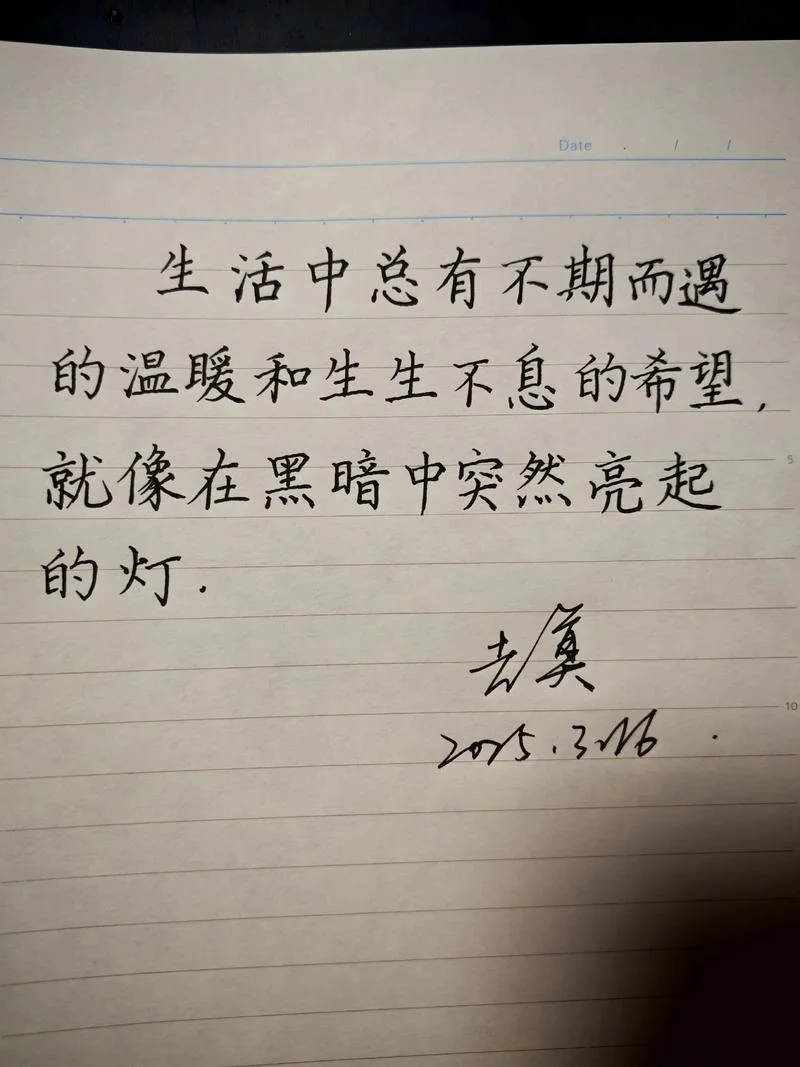 Date . / /
生活中总有不期而遇
的温暖和生生不息的希望,
就像在黑暗中突然亮起
5
的灯.
2025.3.16
10